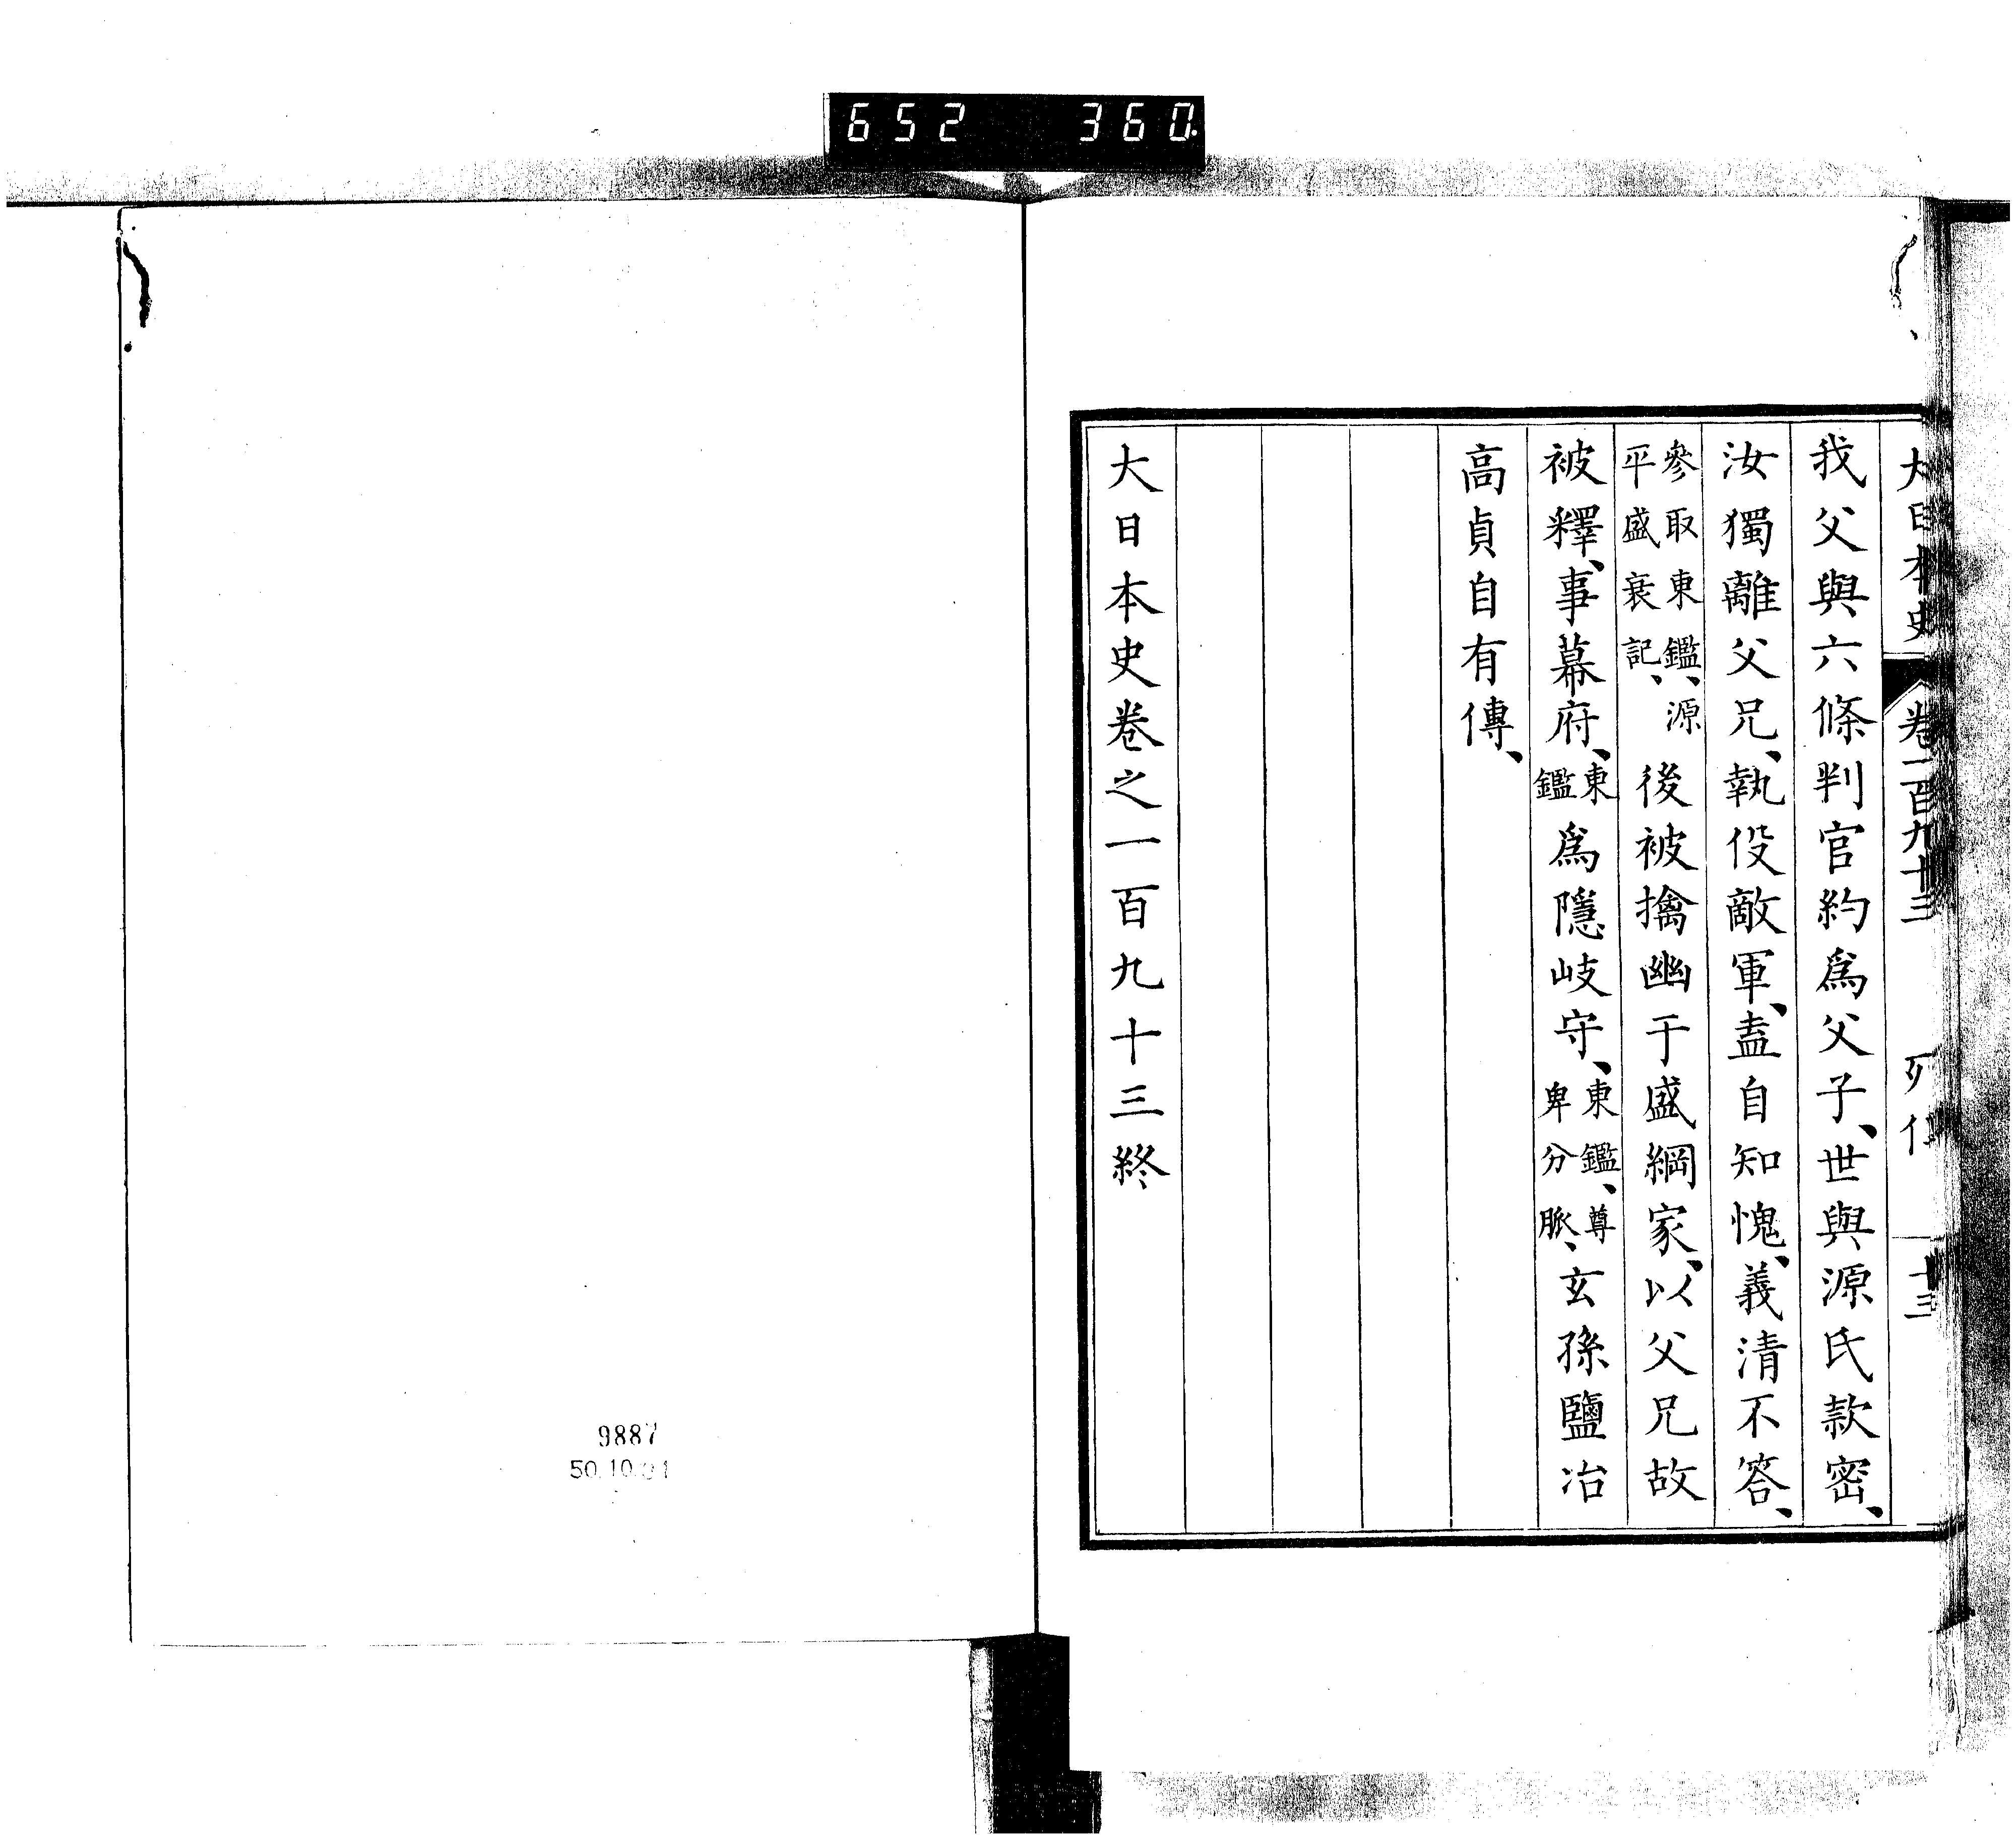 652 360.
大日本史 卷一百九十三 列傳 十三
我父與六條判官約爲父子、世與源氏款密、
汝獨離父兄、執役敵軍、盍自知愧、義清不答、
參取東鑑、源
平盛衰記、
後被擒幽于盛綱家、以父兄故
被釋、事幕府、
東
鑑
爲隱岐守、
東鑑、尊
卑分脈、
玄孫鹽冶
高貞自有傳、
大日本史卷之一百九十三終
9887